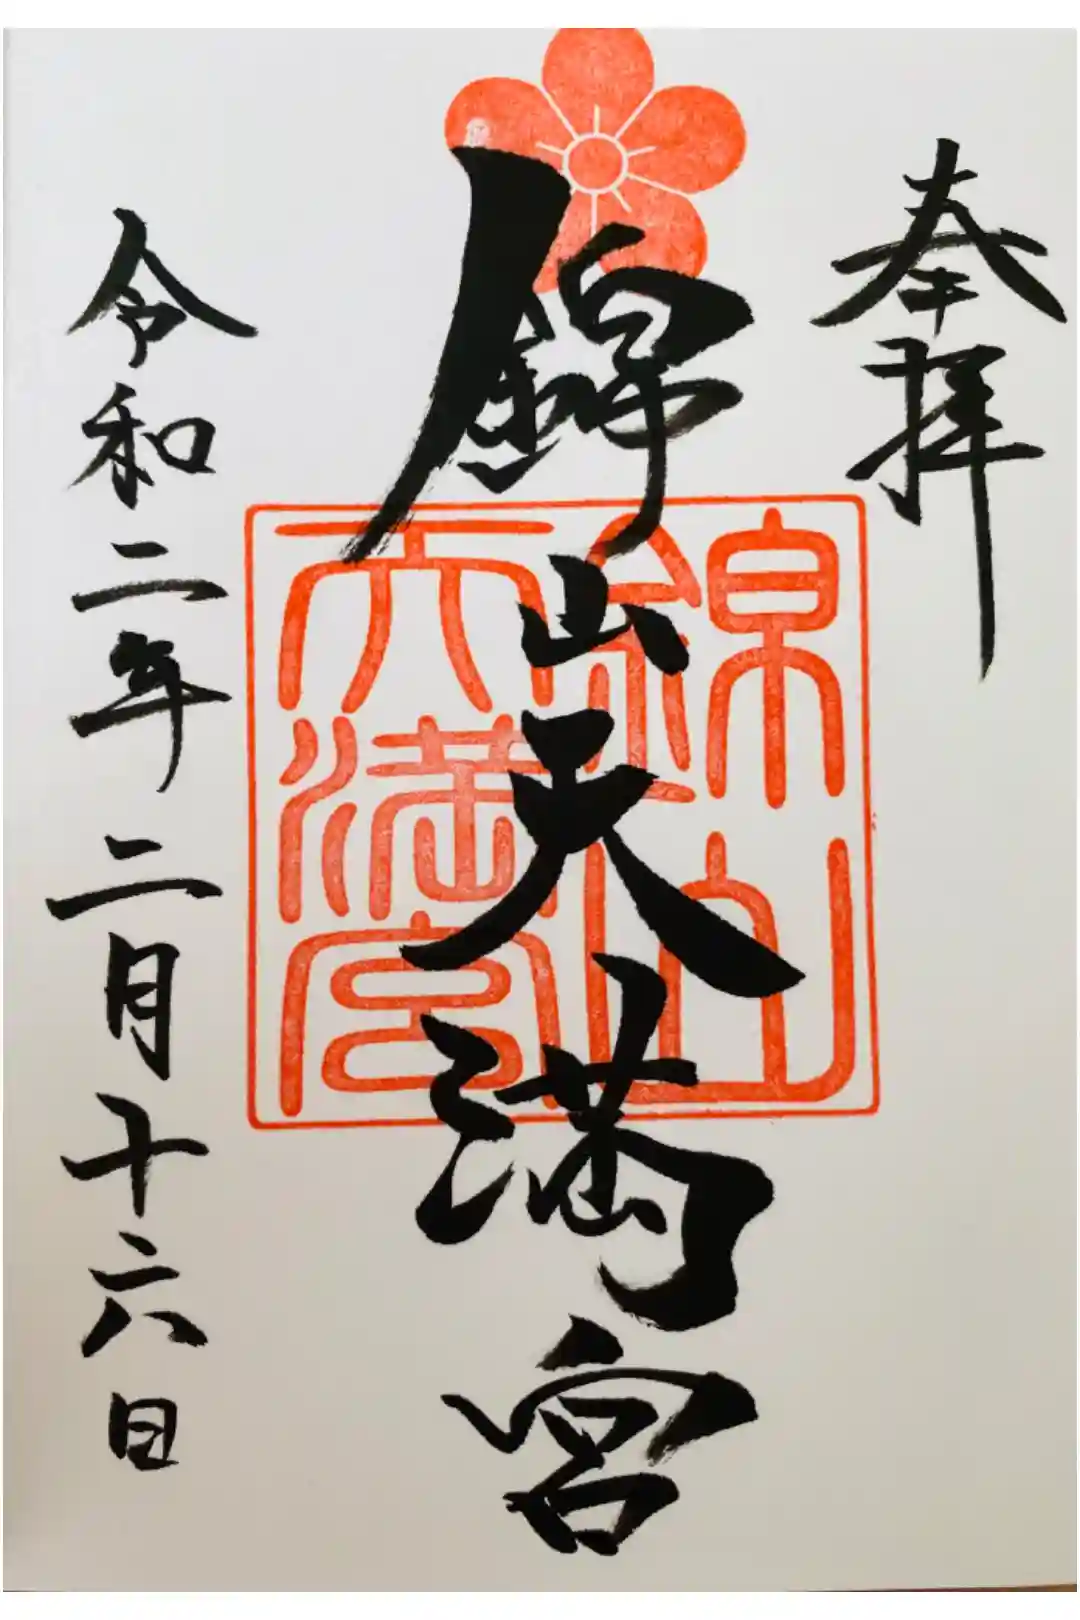 奉拝
錦山天満宮
錦山
天満宮
令和二年二月十六日